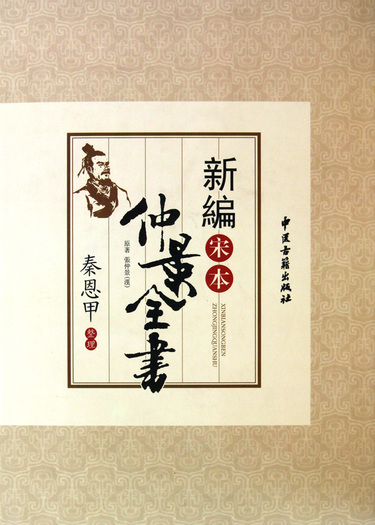 新編
宋本
仲景全書
XINBIANSONGBEN
ZHONGJINGQUANSHU
原著 張仲景(漢)
秦恩甲
整理
中医古籍出版社